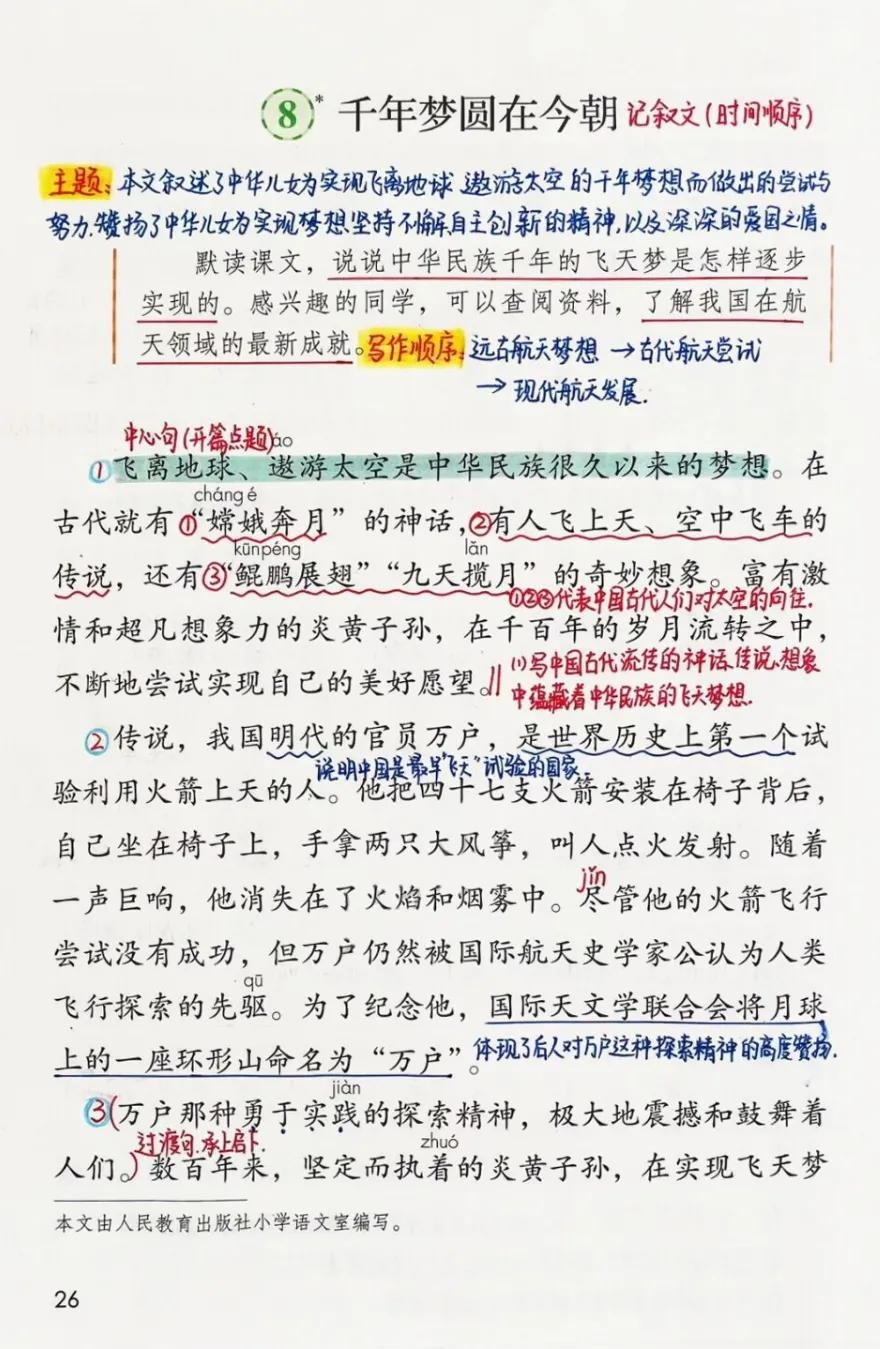 8* 千年梦圆在今朝 记叙文(时间顺序)
主题:本文叙述了中华儿女为实现飞离地球 遨游太空的千年梦想而做出的尝试与
努力,赞扬了中华儿女为实现梦想坚持不懈,自主创新的精神,以及深深的爱国之情。
默读课文,说说中华民族千年的飞天梦是怎样逐步
实现的。感兴趣的同学,可以查阅资料,了解我国在航
天领域的最新成就。写作顺序:远古航天梦想→古代航天尝试
→现代航天发展.
中心句(开篇点题)
áo
①飞离地球、遨游太空是中华民族很久以来的梦想。在
cháng é
古代就有①“嫦娥奔月”的神话,②有人飞上天、空中飞车的
kūnpéng lǎn
传说,还有③“鲲鹏展翅”“九天揽月”的奇妙想象。富有激
①②③代表中国古代人们对太空的向往.
情和超凡想象力的炎黄子孙,在千百年的岁月流转之中,
(1)写中国古代流传的神话、传说、想象
不断地尝试实现自己的美好愿望。
中蕴藏着中华民族的飞天梦想.
②传说,我国明代的官员万户,是世界历史上第一个试
说明中国是最早“飞天”试验的国家.
验利用火箭上天的人。他把四十七支火箭安装在椅子背后,
自己坐在椅子上,手拿两只大风筝,叫人点火发射。随着
jǐn
一声巨响,他消失在了火焰和烟雾中。尽管他的火箭飞行
尝试没有成功,但万户仍然被国际航天史学家公认为人类
qū
飞行探索的先驱。为了纪念他,国际天文学联合会将月球
上的一座环形山命名为“万户”。体现了后人对万户这种探索精神的高度赞扬.
jiàn
③(万户那种勇于实践的探索精神,极大地震撼和鼓舞着
过渡句.承上启下.
zhuó
人们。)数百年来,坚定而执着的炎黄子孙,在实现飞天梦
本文由人民教育出版社小学语文室编写。
26